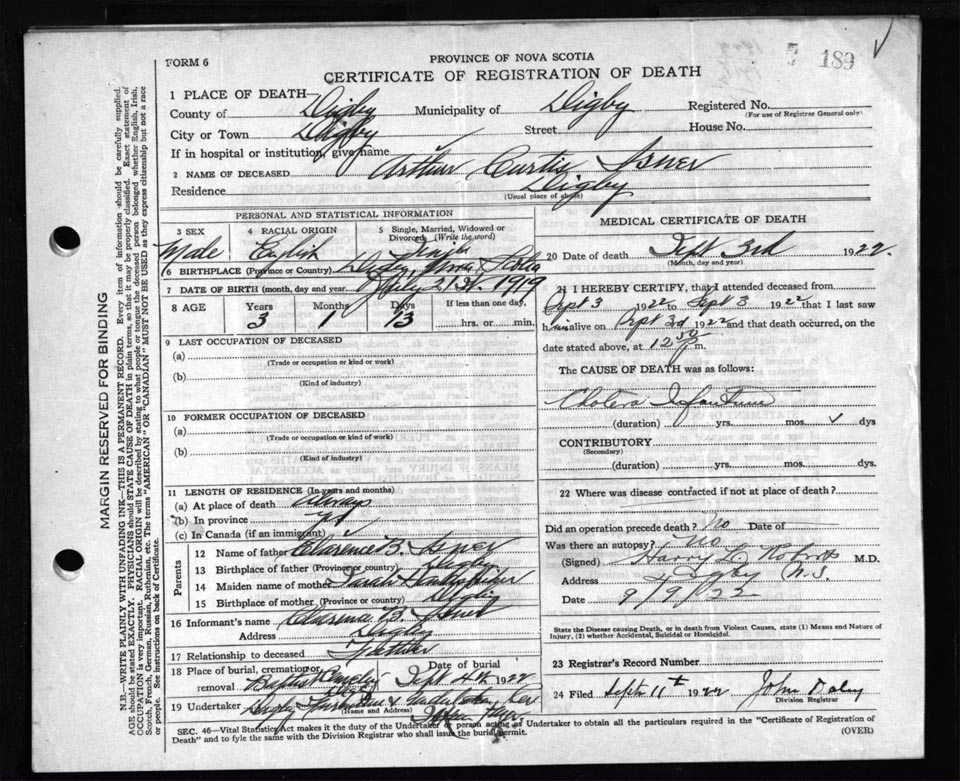 189
FORM 6
PROVINCE OF NOVA SCOTIA
CERTIFICATE OF REGISTRATION OF DEATH
1 PLACE OF DEATH
County of Digby Municipality of Digby Registered No.
(For use of Registrar General only)
City or Town Digby Street House No.
If in hospital or institution, give name
2 NAME OF DECEASED Arthur Curtis Isner
Residence Digby
(Usual place of abode)
PERSONAL AND STATISTICAL INFORMATION
3 SEX 4 RACIAL ORIGIN 5 Single, Married, Widowed or Divorced (Write the word)
Male English Single
6 BIRTHPLACE (Province or Country) Digby, Nova Scotia
7 DATE OF BIRTH (month, day and year) July 21st. 1919
8 AGE Years Months Days If less than one day,
3 1 13 hrs. or min.
9 LAST OCCUPATION OF DECEASED
(a)
(Trade or occupation or kind or work)
(b)
(Kind of industry)
10 FORMER OCCUPATION OF DECEASED
(a)
(Trade or occupation or kind of work)
(b)
(Kind of industry)
11 LENGTH OF RESIDENCE (In years and months)
(a) At place of death Always
(b) In province yes
(c) In Canada (if an immigrant)
Parents
12 Name of father Clarence B. Isner
13 Birthplace of father (Province or country) Digby
14 Maiden name of mother
15 Birthplace of mother (Province or country) Digby
16 Informant's name Clarence B. Isner
Address Digby
17 Relationship to deceased Father
18 Place of burial, cremation or removal Baptist Cemetery Date of burial Sept 4th 1922
19 Undertaker Digby Furniture & Undertaking
(Name and Address)
MEDICAL CERTIFICATE OF DEATH
20 Date of death Sept 3rd 1922.
(Month, day and year)
21 I HEREBY CERTIFY, that I attended deceased from
Sept 3 1922 to Sept 3 1922 that I last saw
him alive on Sept 3d 1922 and that death occurred, on the
date stated above, at 12 30 P m.
The CAUSE OF DEATH was as follows:
Cholera Infantum
(duration) yrs. mos. dys
CONTRIBUTORY
(Secondary)
(duration) yrs. mos. dys.
22 Where was disease contracted if not at place of death?
Did an operation precede death? No Date of
Was there an autopsy? No
(Signed) Harry L. M.D.
Address Digby N.S.
Date 9/9/22
State the Disease causing Death, or in death from Violent Causes, state (1) Means and Nature of
Injury, (2) whether Accidental, Suicidal or Homicidal.
23 Registrar's Record Number
24 Filed Septr 11th 1922 John Daley
Division Registrar
SEC. 46—Vital Statistics Act makes it the duty of the Undertaker or person acting as Undertaker to obtain all the particulars required in the "Certificate of Registration of
Death" and to fyle the same with the Division Registrar who shall issue the burial permit.
(OVER)
MARGIN RESERVED FOR BINDING
N.B.—WRITE PLAINLY WITH UNFADING INK—THIS IS A PERMANENT RECORD. Every item of information should be carefully supplied.
AGE should be stated EXACTLY. PHYSICIANS should STATE CAUSE OF DEATH in plain terms, so that it may be properly classified. Exact statement of
OCCUPATION is very important. RACIAL ORIGIN will be described by stating to what people or tongue the deceased person belonged whether English, Irish,
Scotch, French, German, Russian, Ruthenian, etc. The terms "AMERICAN" or "CANADIAN" MUST NOT BE USED as they express citizenship but not a race
or people. See instructions on back of Certificate.